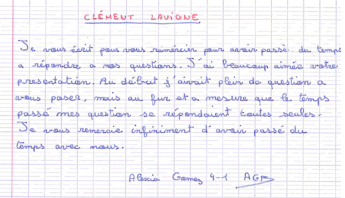 CLÉMENT LAVIGNE
Je vous écrit pour vous remercier pour avoir passé du temps
a répondre a nos questions. J'ai beaucoup aimée votre
presentation. Au début j'avait plein de question a
vous poser, mais au fur et a mesure que le temps
passé mes question se répondaient toutes seules.
Je vous remercie infiniment d'avoir passé du
temps avec nous.
Alexia Gomez 4-1 AGA